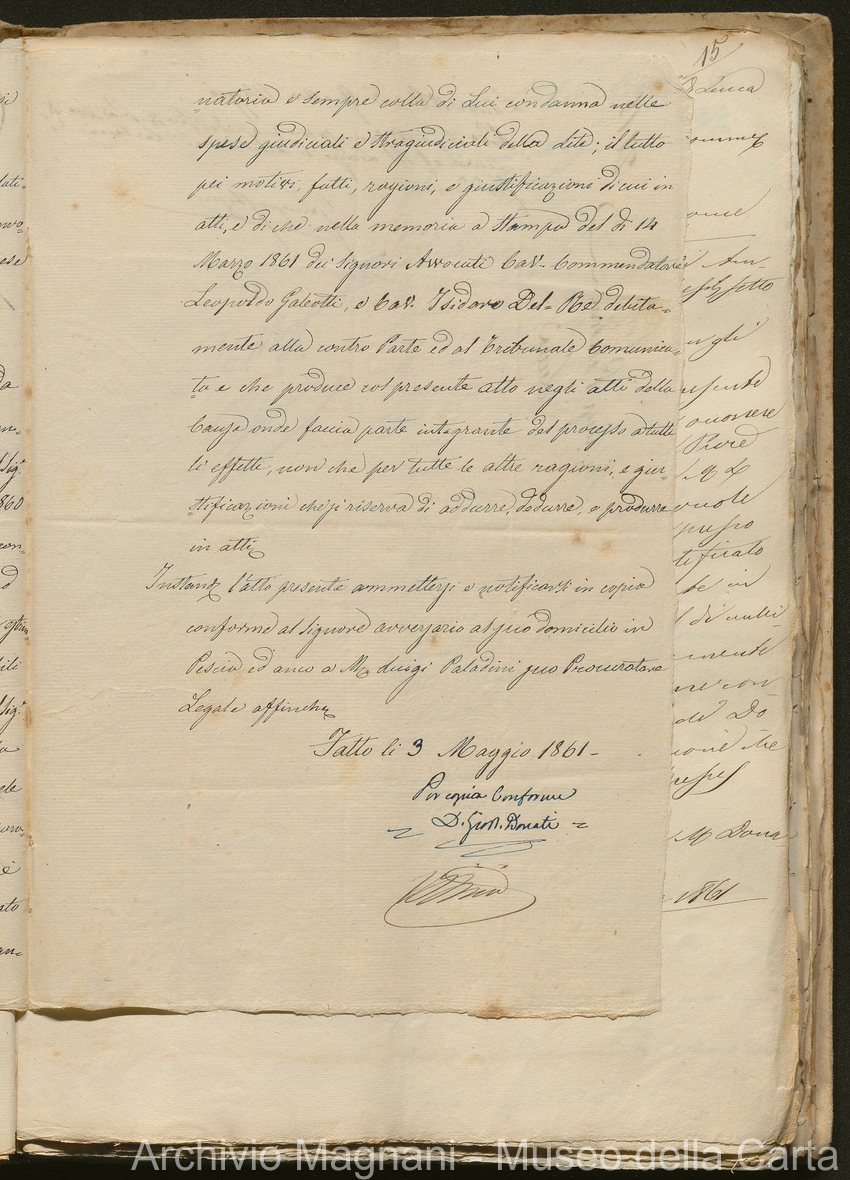 15
natoria e sempre colla di Lui condanna nelle
spese giudiciali e stragiudiciali della Lite; il tutto
pei motivi, fatti, ragioni, e giustificazioni di cui in
atti, e di che nella memoria a stampa del dì 14
Marzo 1861 dei Signori Avvocati Cav. Commendatore
Leopoldo Galeotti, e Cav. Isidoro Del-Re debita=
mente alla contro Parte ed al Tribunale Comunica=
ta e che produce col presente atto negli atti della
Causa onde faccia parte integrante del processo a tutti
li effetti, non che per tutte le altre ragioni, e giu=
stificazioni che si riserva di addurre, dedurre, e produrre
in atti
Instando l'atto presente ammettersi e notificarsi in copia
conforme al Signore avversario al suo domicilio in
Pescia ed anco a M. Luigi Paladini suo Procuratore
Legale affinche
Fatto li 3 Maggio 1861-
Per copia Conforme
D. Giov. Donati
Lucca
ogni
presente
occorrere
note
presso
tificato
te in
mente
con
Do
M Dona
1861
1860
Sig.
Archivio Magnani - Museo della Carta